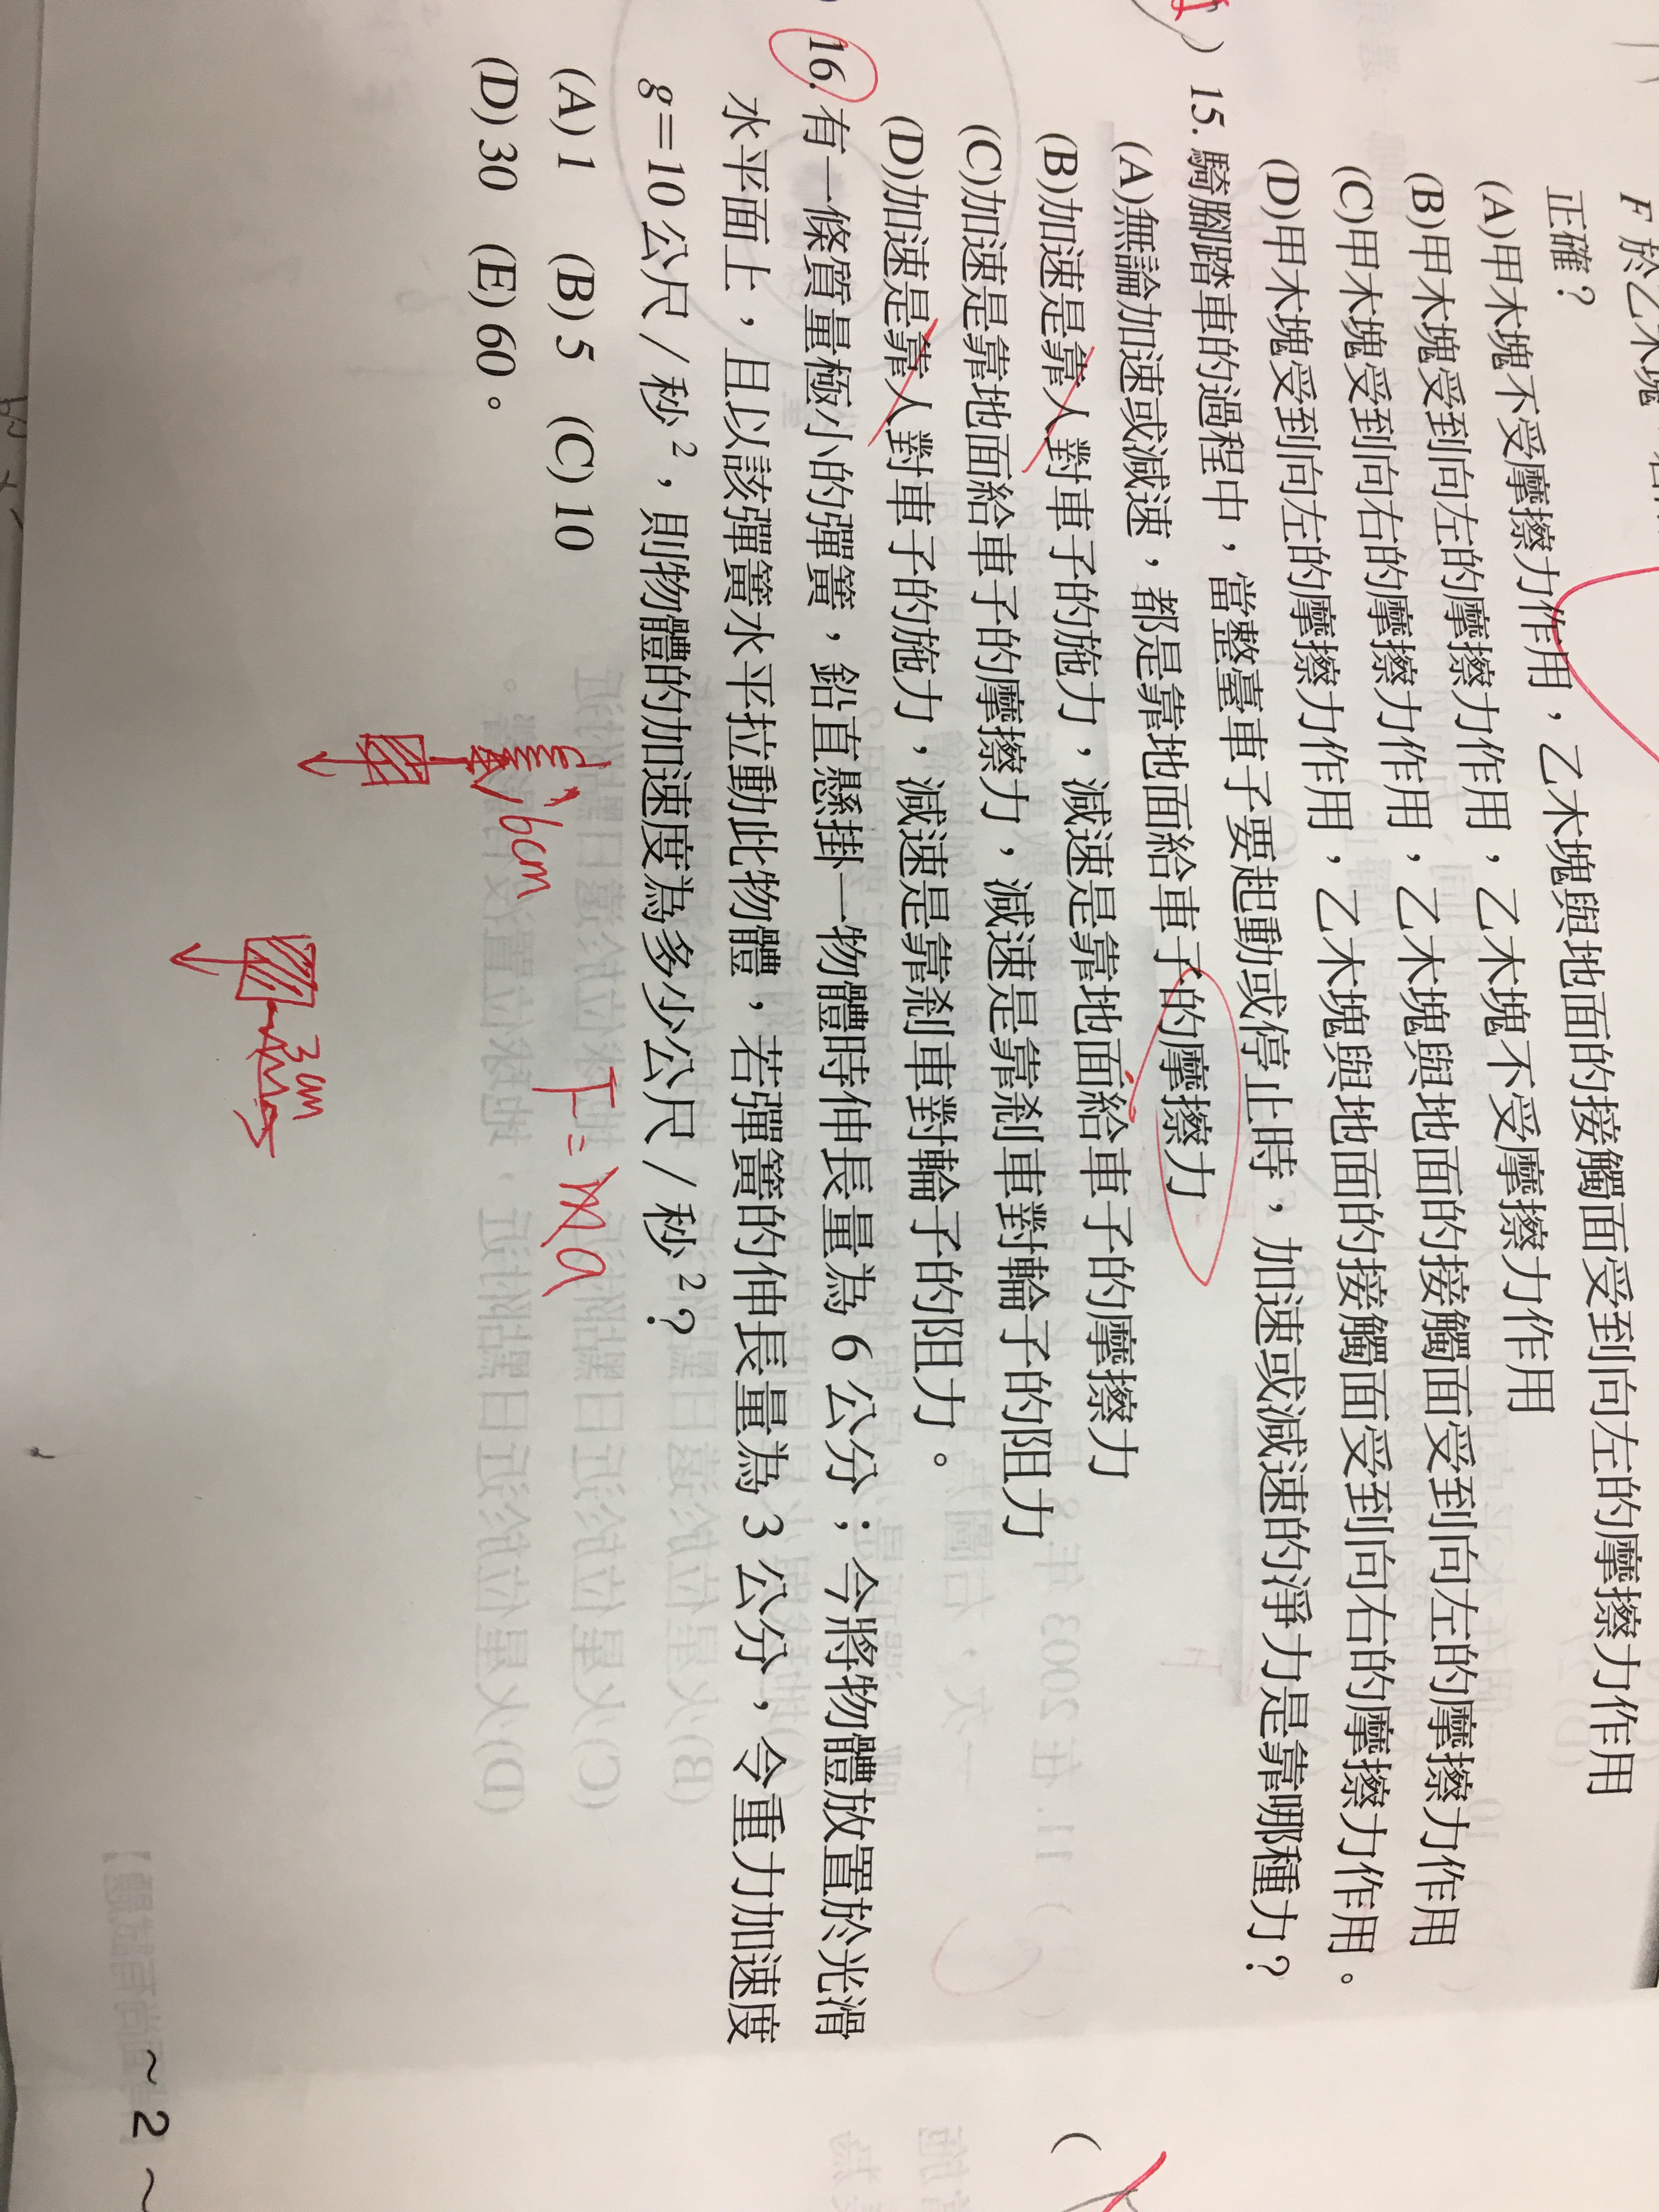 F 於乙木塊
正確？
(A)甲木塊不受摩擦力作用，乙木塊與地面的接觸面受到向左的摩擦力作用
(B)甲木塊受到向左的摩擦力作用，乙木塊不受摩擦力作用
(C)甲木塊受到向右的摩擦力作用，乙木塊與地面的接觸面受到向左的摩擦力作用
(D)甲木塊受到向左的摩擦力作用，乙木塊與地面的接觸面受到向右的摩擦力作用。
) 15. 騎腳踏車的過程中，當整臺車子要起動或停止時，加速或減速的淨力是靠哪種力？
(A)無論加速或減速，都是靠地面給車子的摩擦力
(B)加速是靠人對車子的施力，減速是靠地面給車子的摩擦力
(C)加速是靠地面給車子的摩擦力，減速是靠剎車對輪子的阻力
(D)加速是靠人對車子的施力，減速是靠剎車對輪子的阻力。
) 16. 有一條質量極小的彈簧，鉛直懸掛一物體時伸長量為 6 公分；今將物體放置於光滑
水平面上，且以該彈簧水平拉動此物體，若彈簧的伸長量為 3 公分，令重力加速度
g＝10 公尺／秒²，則物體的加速度為多少公尺／秒²？
(A) 1 (B) 5 (C) 10
(D) 30 (E) 60。
6cm
F = ma
3cm
～ 2 ～